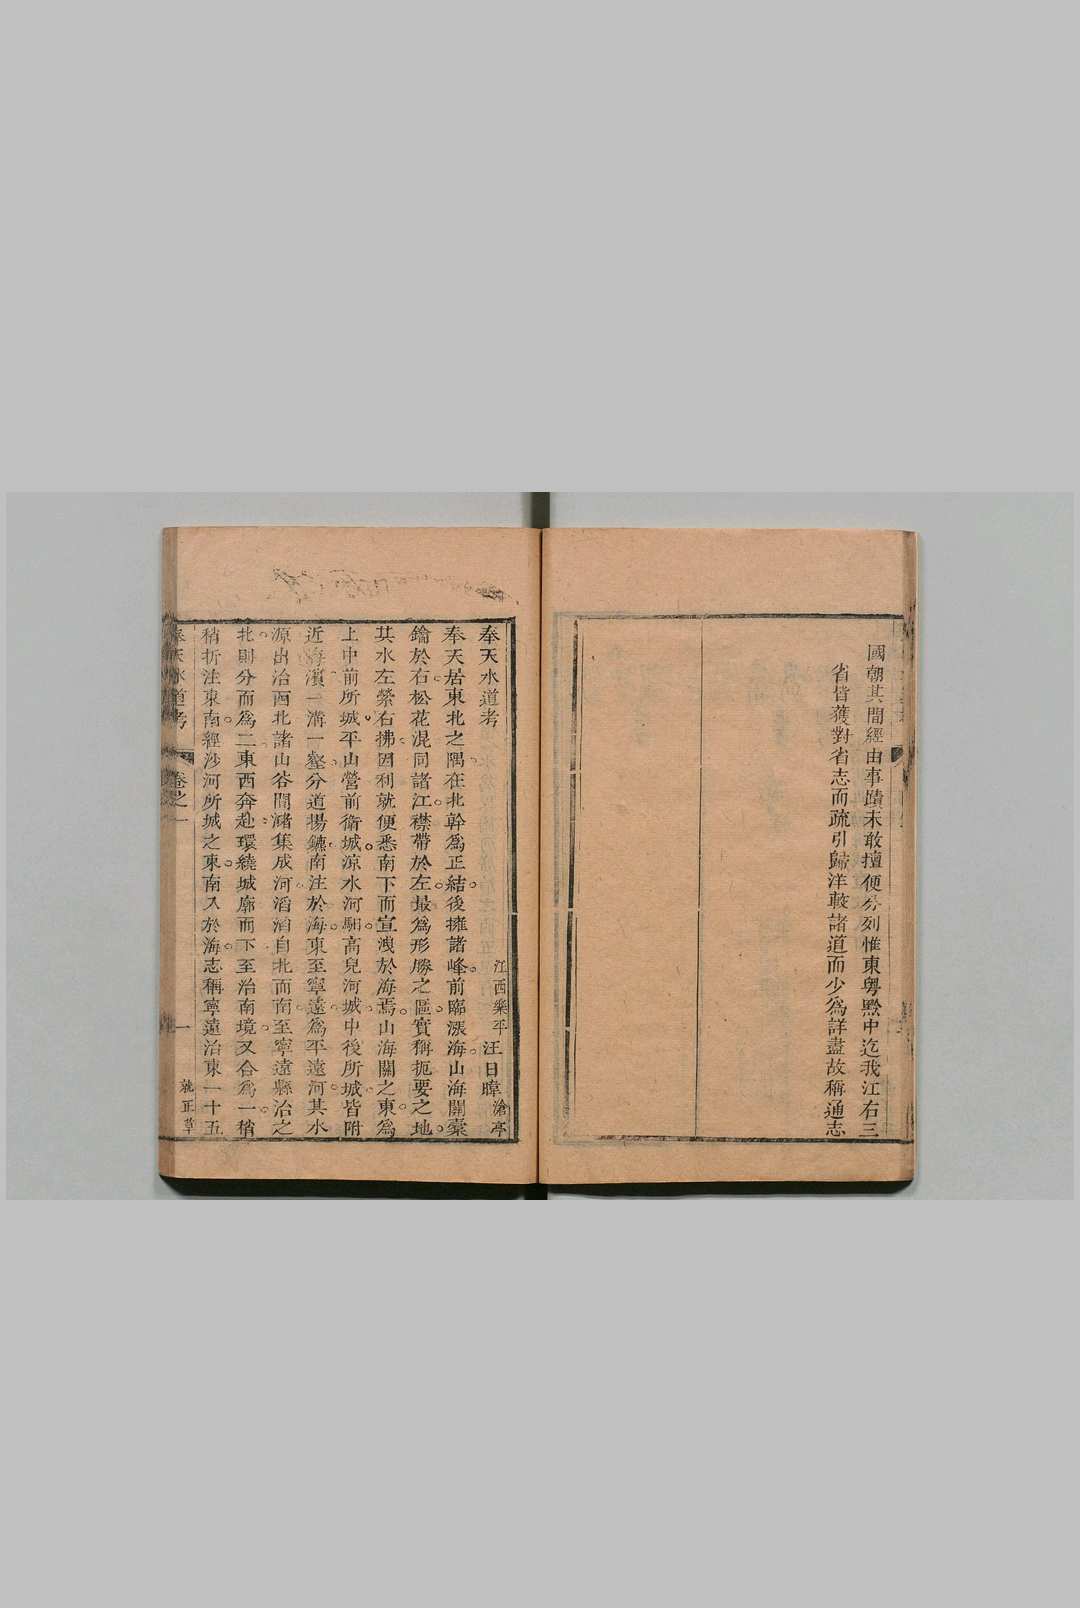 國朝其間經由事蹟未敢擅便分列惟東粵黔中迄我江右三
省皆獲對省志而疏引歸洋較諸道而少為詳盡故稱通志
奉天水道考
江西樂平汪日暐滄亭
奉天居東北之隅在北幹為正結後擁諸峰前臨漲海山海關橐
鑰於右松花混同諸江襟帶於左最為形勝之區實稱扼要之地
其水左縈右拂因利就便悉南下而宣洩於海焉山海關之東為
上中前所城平山營前衛城涼水河駟高兒河城中後所城皆附
近海濱一溝一壑分道揚鑣南注於海東至寧遠為平遠河其水
源出治西北諸山谷間瀦集成河滔滔自北而南至寧遠縣治之
北則分而為二東西奔赴環繞城廓而下至治南境又合為一稍
稍折注東南經沙河所城之東南入於海志稱寧遠治東一十五
奉天水道考
卷之一
一
就正草